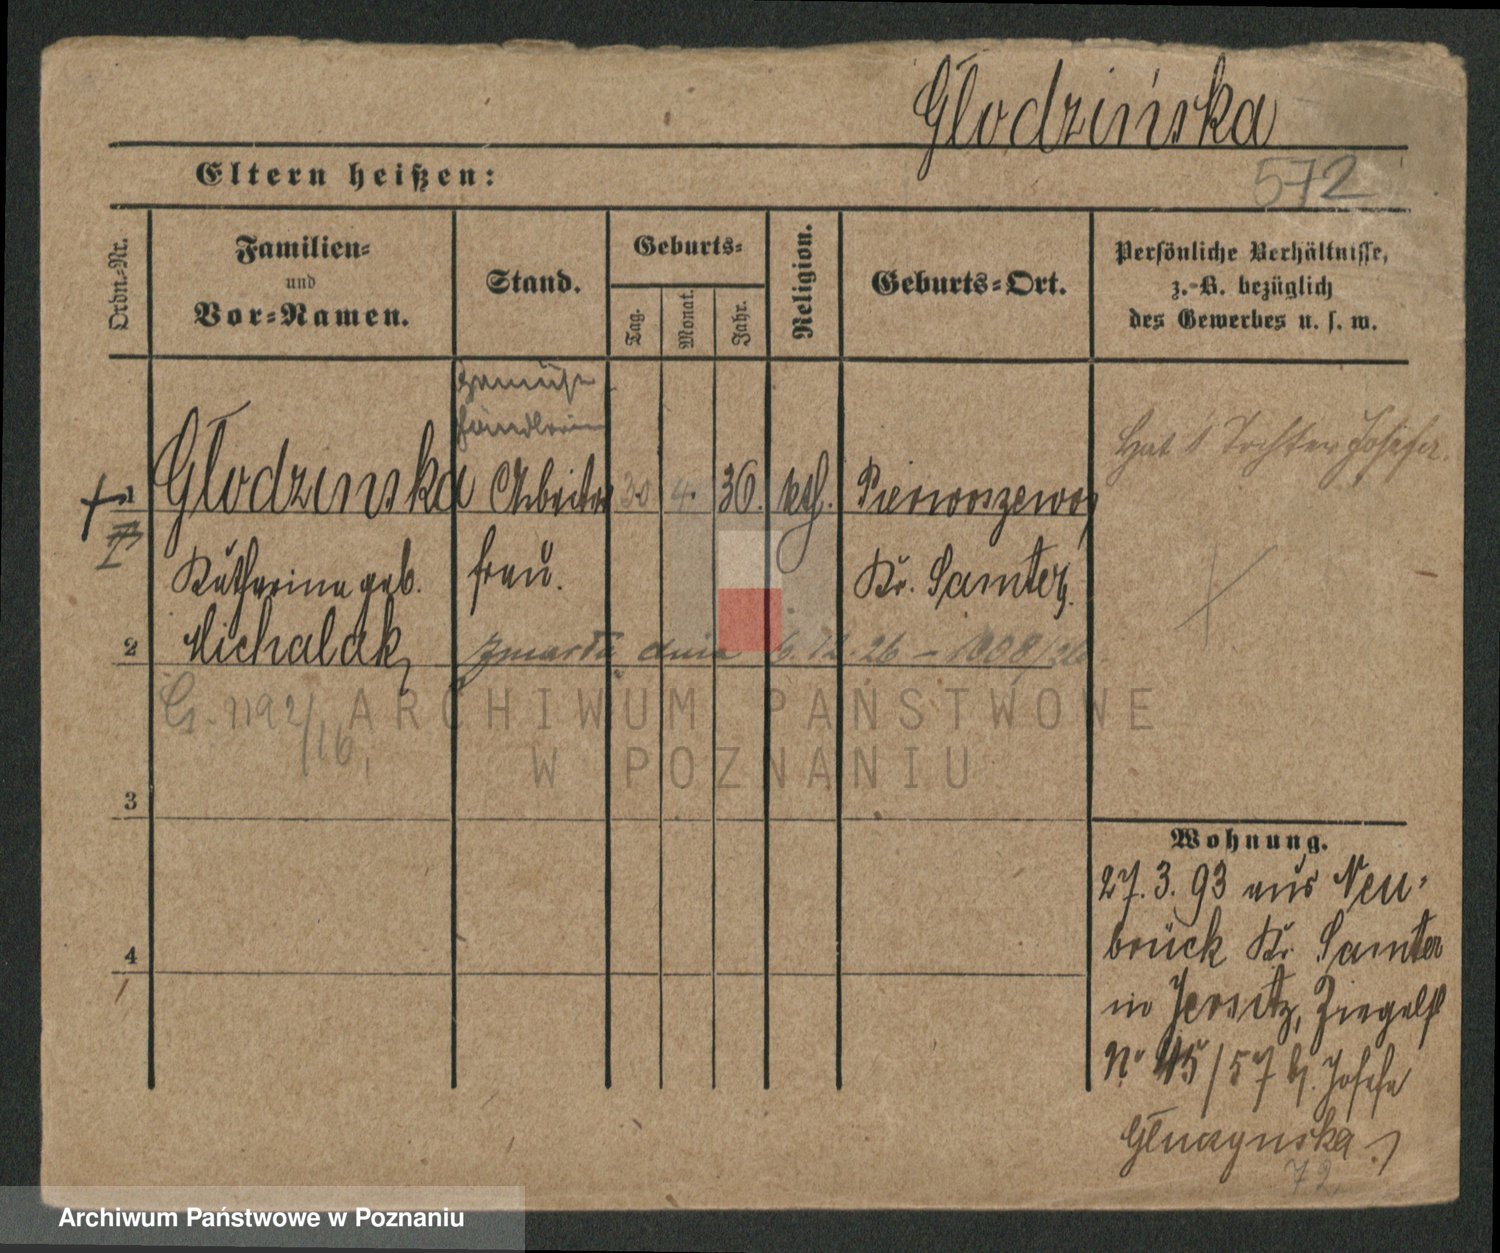 Głodzińska
572
Eltern heißen:
Ordn.-Nr.
Familien-
und
Vor-Namen.
Stand.
Geburts-
Tag.
Monat.
Jahr.
Religion.
Geburts-Ort.
Persönliche Verhältnisse,
z.-B. bezüglich
des Gewerbes u. s. w.
Gemüse
händlerin
1
Głodzinska
Arbeiter
30
4.
36.
kth.
Pierwoszewo
Hat 1 Tochter Josefa.
Katharina geb.
frau.
Kr. Samter.
2
Michalak
zmarła dnia 6.12.26 - 1008/26
G. 1192/16
ARCHIWUM PAŃSTWOWE
W POZNANIU
3
4
Wohnung.
27.3.93 aus Neu-
brück Kr. Samter
in Jersitz, Ziegelst
No 45/57 b. Josefa
72
Archiwum Państwowe w Poznaniu